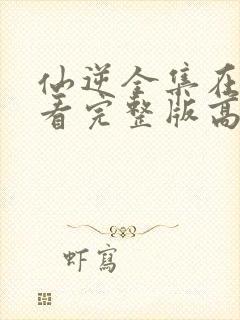 仙逆全集在
看完整版高
虾写